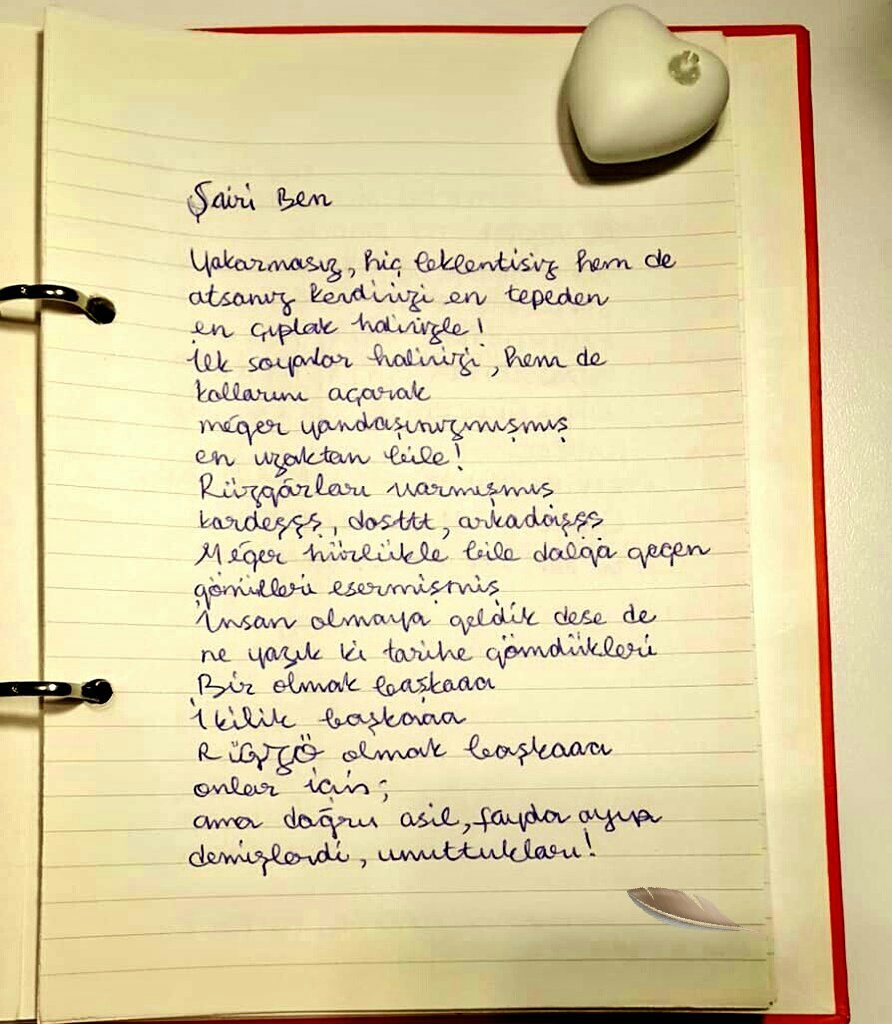 Şairi Ben
Yakarmasız, hiç beklentisiz hem de
atsanız kendinizi en tepeden
en çıplak halinizle!
ilk soyanlar halinizi, hem de
kollarını açarak
méğer yandaşınızmışmış
en uzaktan bile!
Rüzgârları varmışmış
kardeşşş, dosttt, arkadaışşş
Méğer hürlükle bile dalga geçen
gönülleri esermişmiş
İnsan olmaya geldik dese de
ne yazık ki tarihe gömdükleri
Bir olmak başkaaa
İkilik başkaaa
olmak başkaaa
onlar için;
ama doğru asil, fayda ayıp
demişlerdi, unuttukları!